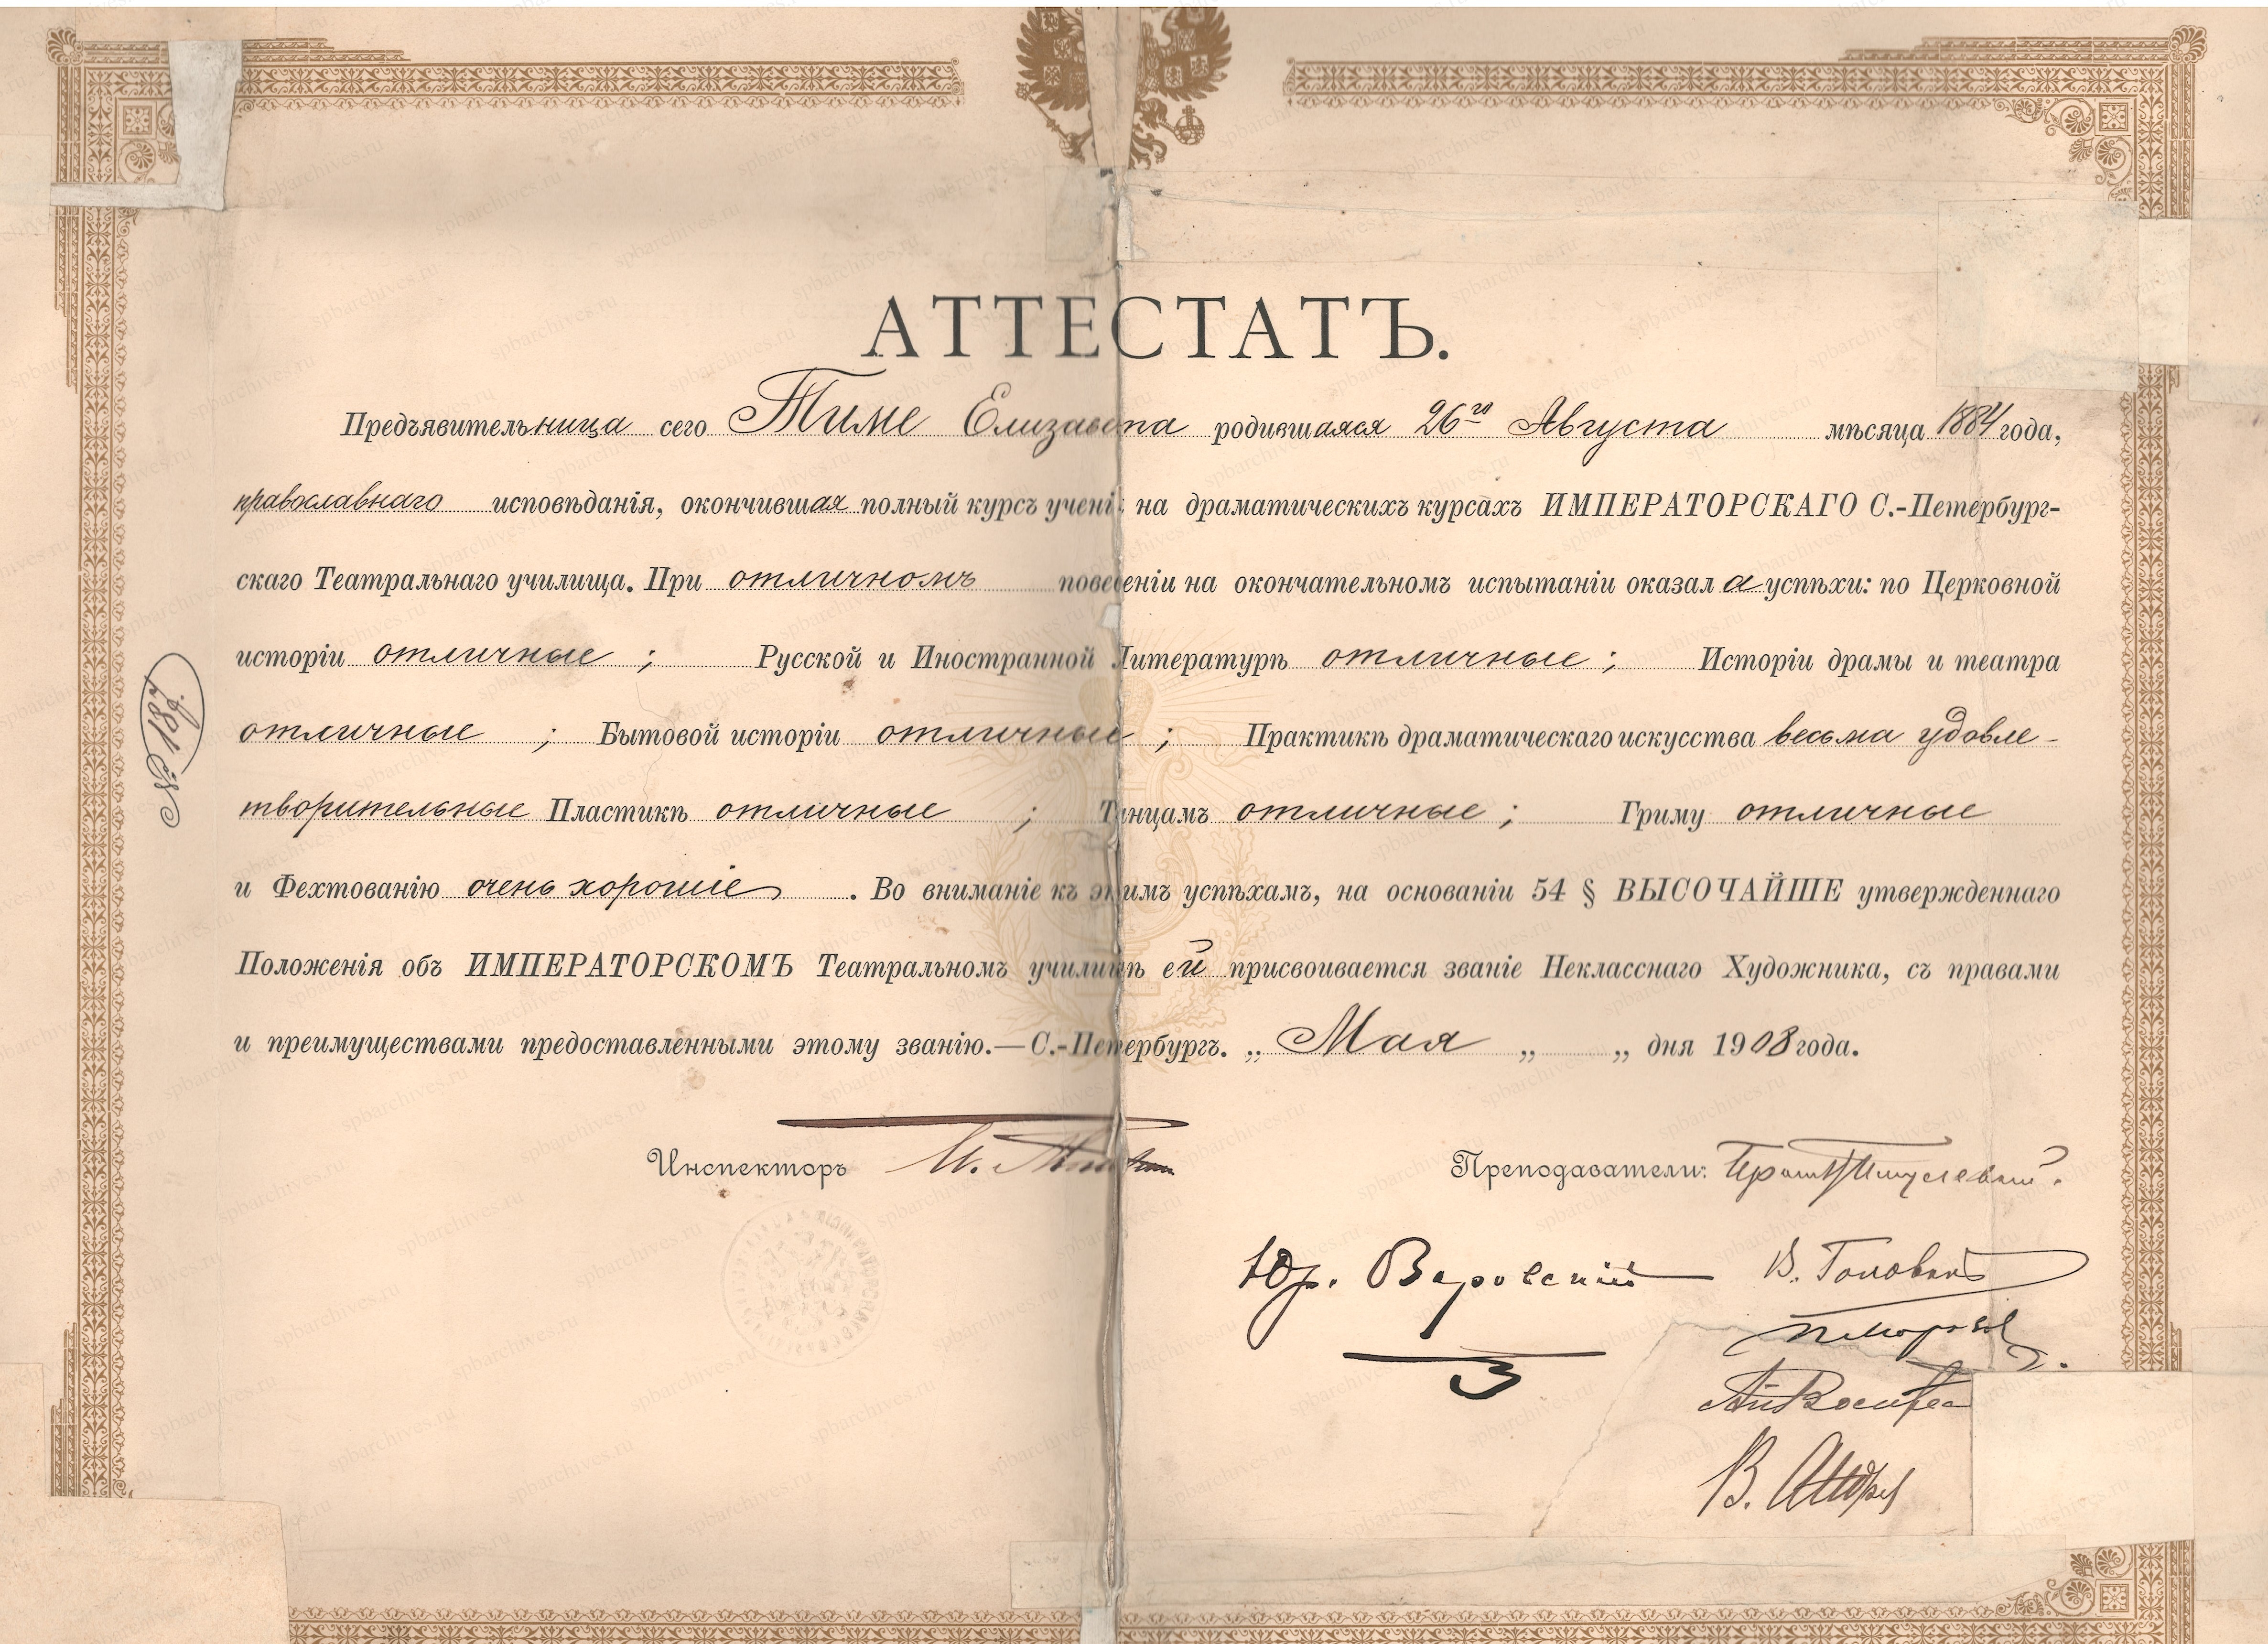 АТТЕСТАТЪ.
Предъявительница сего Тиме Елизавета родившаяся 26го Августа мѣсяца 1884 года,
православнаго исповѣданія, окончившая полный курсъ учені на драматическихъ курсахъ ИМПЕРАТОРСКАГО С.-Петербург-
скаго Театральнаго училища. При отличномъ поведеніи на окончательномъ испытаніи оказала успѣхи: по Церковной
исторіи отличные ; Русской и Иностранной Литературѣ отличные ; Исторіи драмы и театра
отличные ; Бытовой исторіи отличные ; Практикѣ драматическаго искусства весьма удовле-
творительные Пластикѣ отличные ; Танцамъ отличные ; Гриму отличные
и Фехтованію очень хорошіе . Во вниманіе къ этимъ успѣхамъ, на основаніи 54 § ВЫСОЧАЙШЕ утвержденнаго
Положенія объ ИМПЕРАТОРСКОМЪ Театральномъ училищѣ ей присвоивается званіе Неклasснаго Художника, съ правами
и преимуществами предоставленными этому званію.—С.-Петербургъ. „ Мая „ „ дня 1908 года.
Инспекторъ
Преподаватели:
Юр. Озаровскій
В. Головинъ